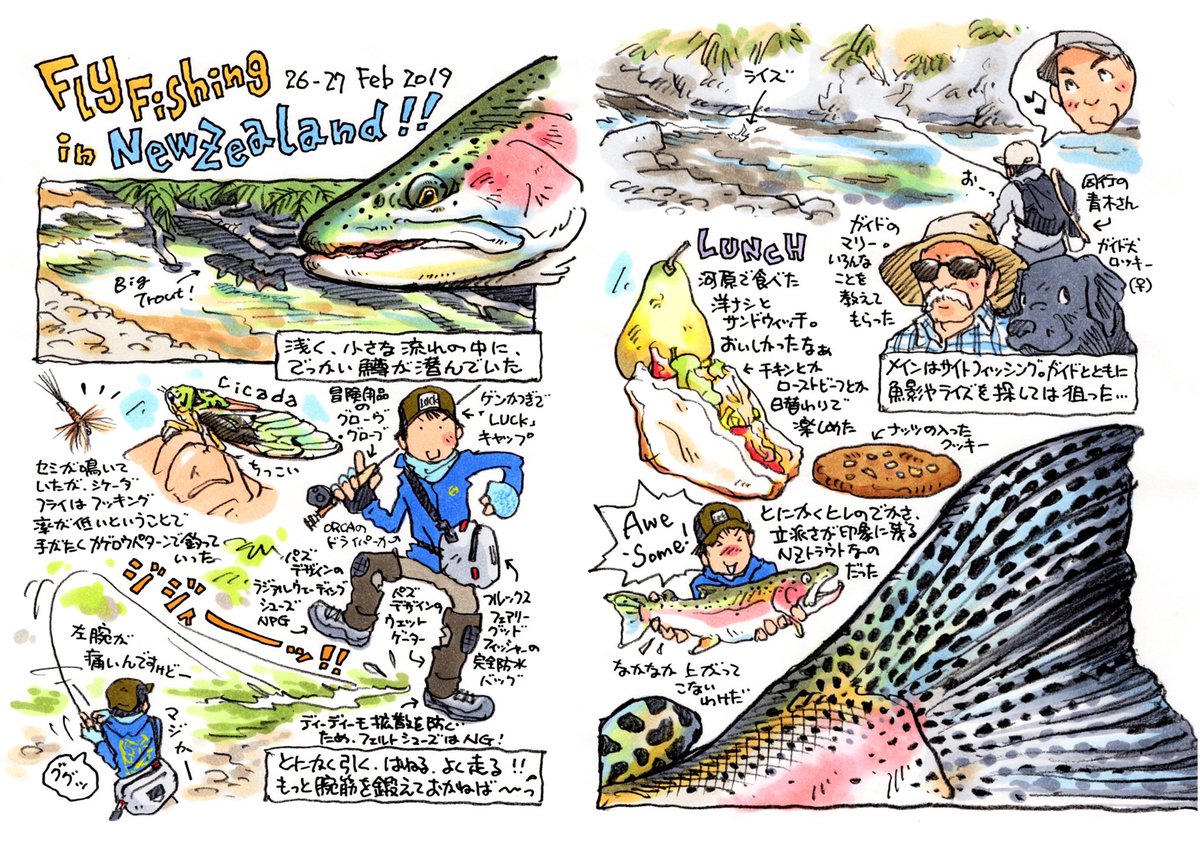 Fly Fishing
in NewZealand!!
26-27 Feb 2019
Big
Trout!
浅く、小さな流れの中に、
でっかい鱒が潜んでいた
Cicada
ちっこい
セミが鳴いて
いたが、シケーダ
フライは フッキング
率が低いということで
手がたくカゲロウパターンで釣って
いった
冒険用品
の
グローヴ
・グローブ
ゲンかつぎで
「LUCK」
キャップ。
ORCAの
ドライパーカ
パズ
デザインの
ラジアルウェーディング
シューズ
NPG
パズ
デザインの
ウェット
ゲーター
フルックス
フェアリー
グッド
フィッシャーの
完全防水
バッグ
ディーディーモ拡散を防ぐ
ため、フェルトシューズはNG!
ジジャーーッ!!
左腕が
痛いんですけどー
マジカー
ググッ
とにかく引く、はねる、よく走る!!
もっと腕筋を鍛えておかねば〜っ
ライズ
おーっ
同行の
青木さん
ガイドの
マリー。
いろんな
ことを
教えて
もらった
ガイド犬
ロッキー
(♀)
メインはサイトフィッシング。ガイドとともに
魚影やライズを探しては狙った…
LUNCH
河原で食べた
洋ナシと
サンドウィッチ。
おいしかったなぁ
チキンとか
ローストビーフとか
日替わりで
楽しめた
ナッツの入った
クッキー
Awe
some!
Luck
とにかくヒレのでかさ、
立派さが印象に残る
NZトラウトなの
だった
なかなか上がって
こない
わけだ